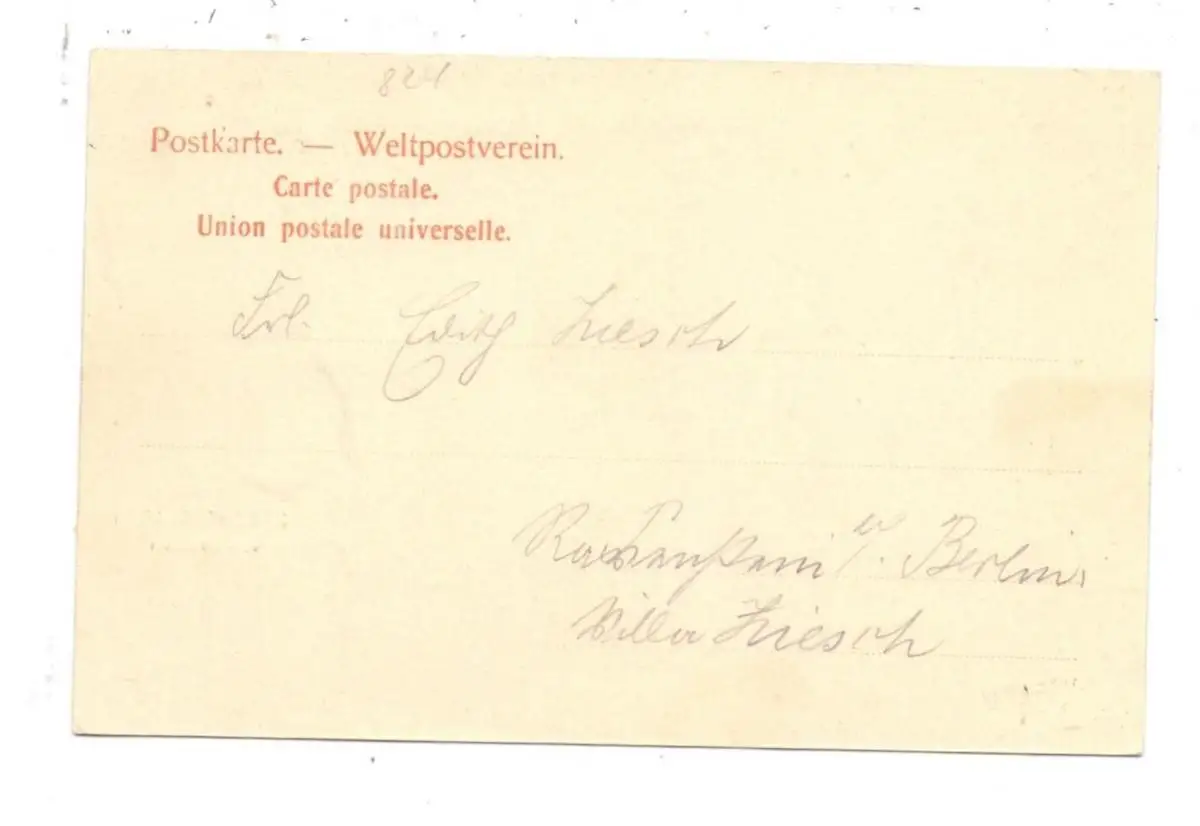 824
Postkarte. — Weltpostverein.
Carte postale.
Union postale universelle.
Frl. Edith Ziesch
b/. Berlin.
Villa Ziesch